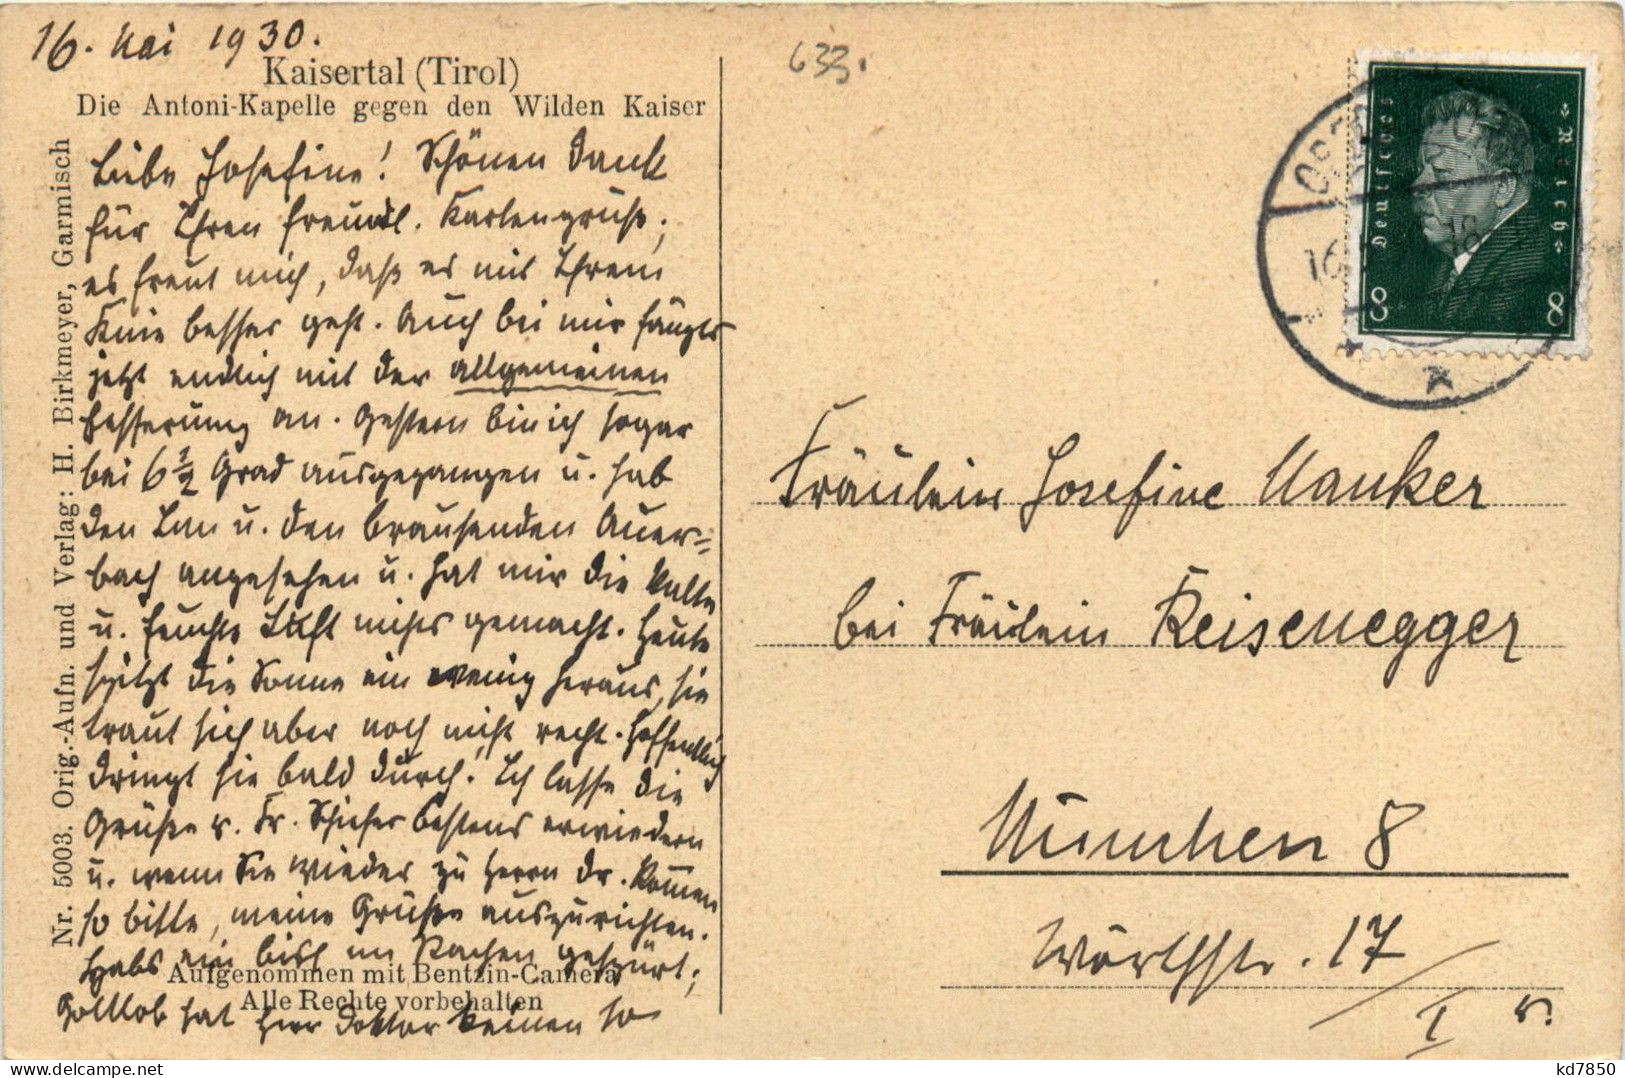 16. Mai 1930.
633.
Kaisertal (Tirol)
Die Antoni-Kapelle gegen den Wilden Kaiser
Liebe Josefine! Schönen Dank
für Ihren freundl. Kartengruß;
es freut mich, daß es mit Ihrem
Knie besser geht. Auch bei mir fängts
jetzt endlich mit der allgemeinen
Besserung an. Gestern bin ich sogar
bei 6 1/2 Grad ausgegangen u. hab
den Inn u. den brausenden Auer=
bach angesehen u. hat mir die kalte
u. feuchte Luft nichts gemacht. Heute
spitzt die Sonne ein wenig heraus, sie
traut sich aber noch nicht recht. Hoffentlich
dringt sie bald durch. Ich lasse die
Grüße v. Fr. bestens erwiedern
u. wenn Sie wieder zu Herrn Dr. kommen
so bitte, meine Grüße auszurichten.
Habs ein bisch im Rachen gespürt;
Gottlob hat Herr Doktor keinen so
Nr. 5003. Orig.-Aufn. und Verlag: H. Birkmeyer, Garmisch
Aufgenommen mit Bentzin-Camera
Alle Rechte vorbehalten
Deutsches Reich
8 8
16
18
Fräulein Josefine Mauker
bei Fräulein Reisenegger
München 8
Wörthstr. 17
I r.
kd7850